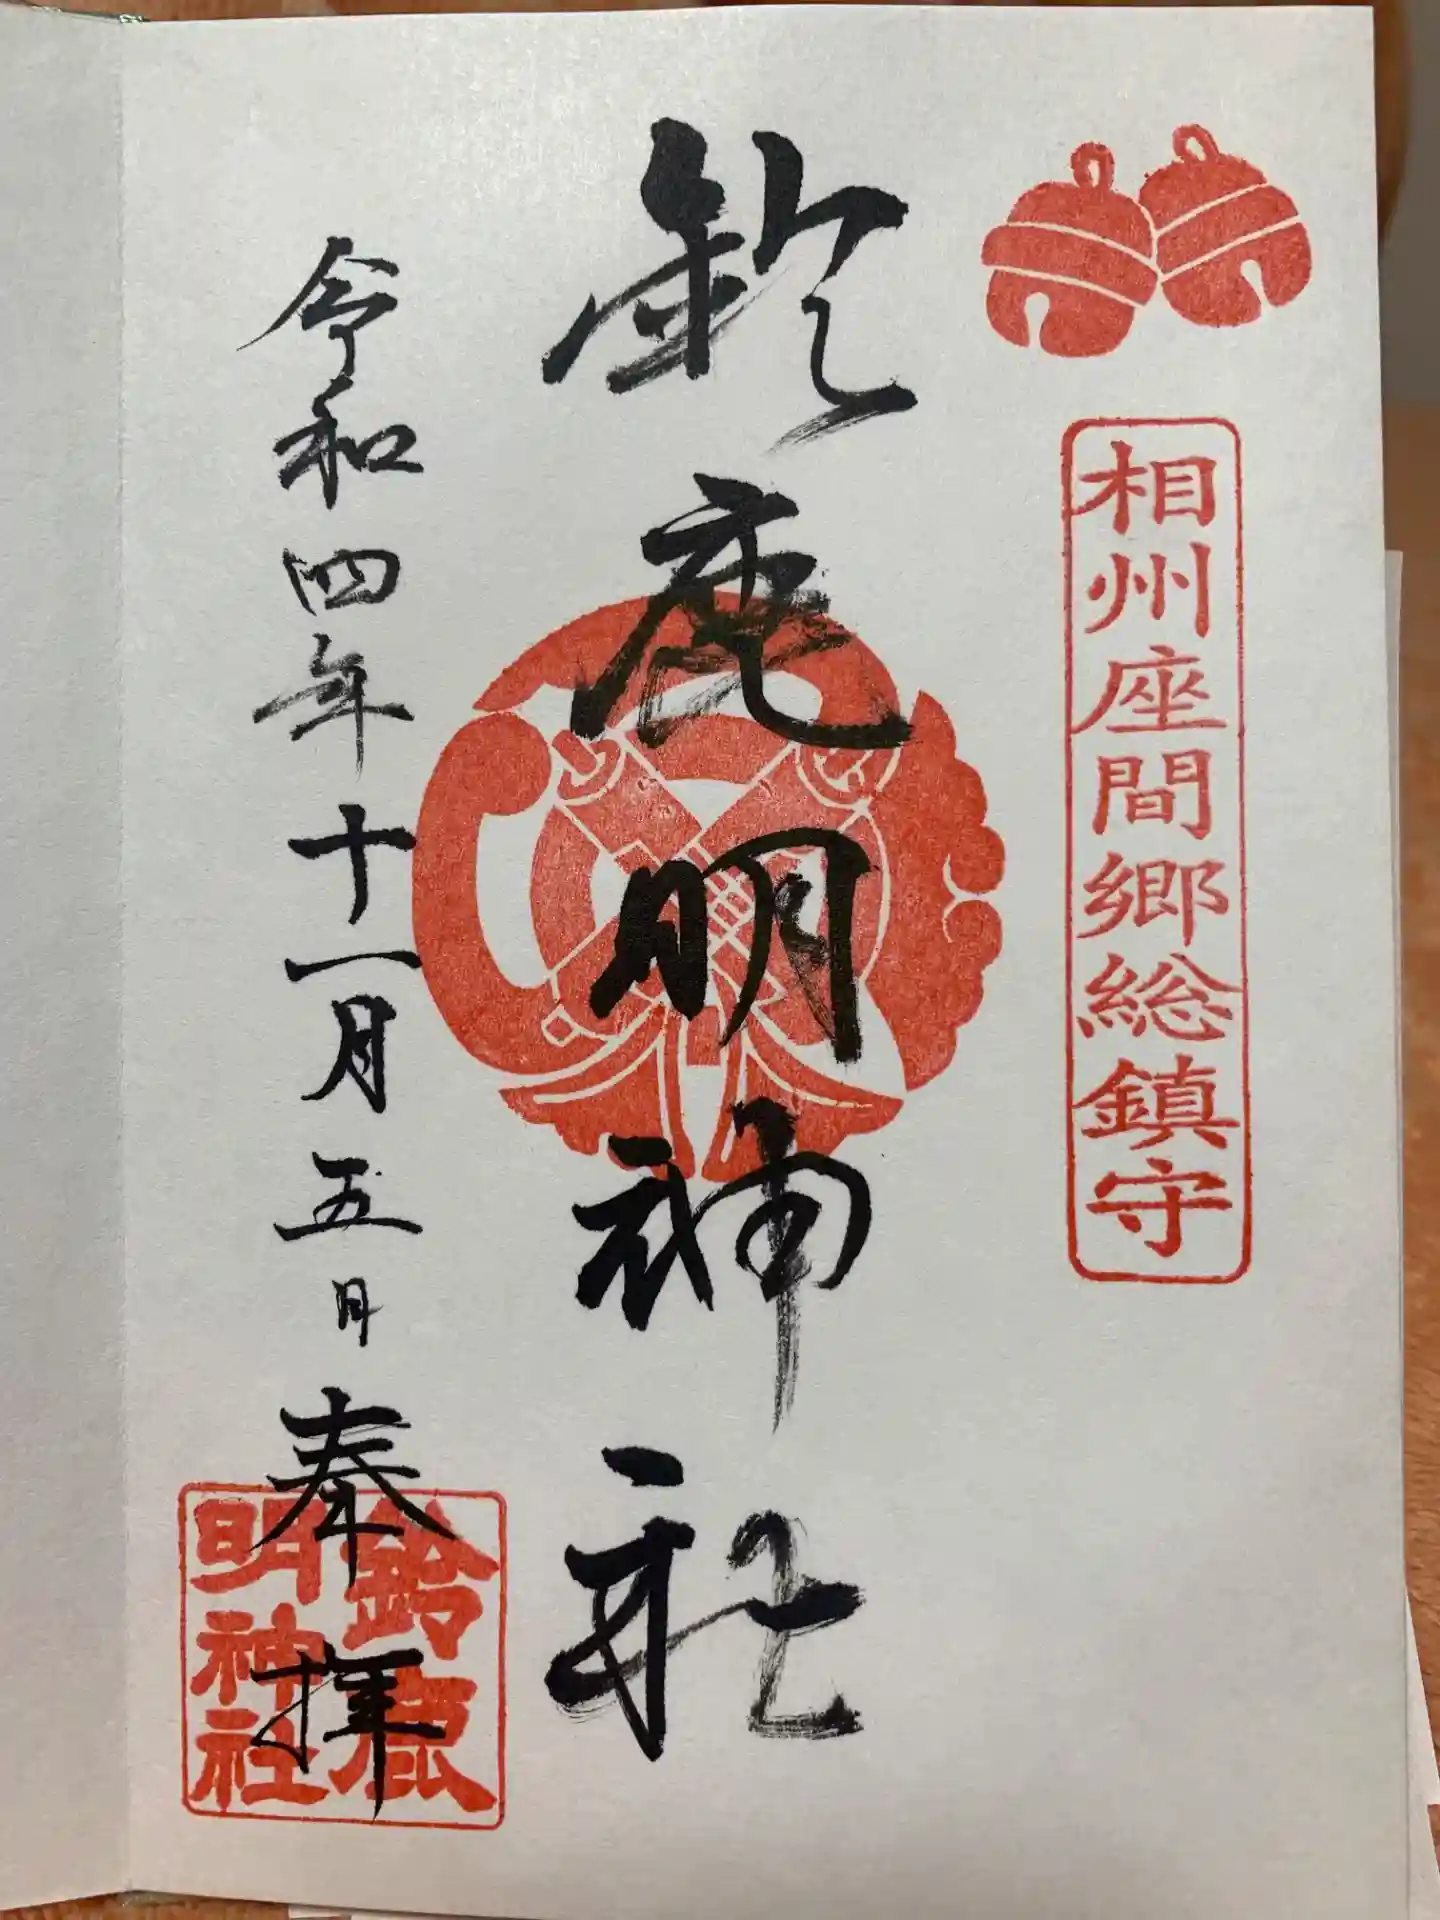 相州座間郷総鎮守
鈴鹿明神社
令和四年十一月五日奉拝
鈴鹿
明神社